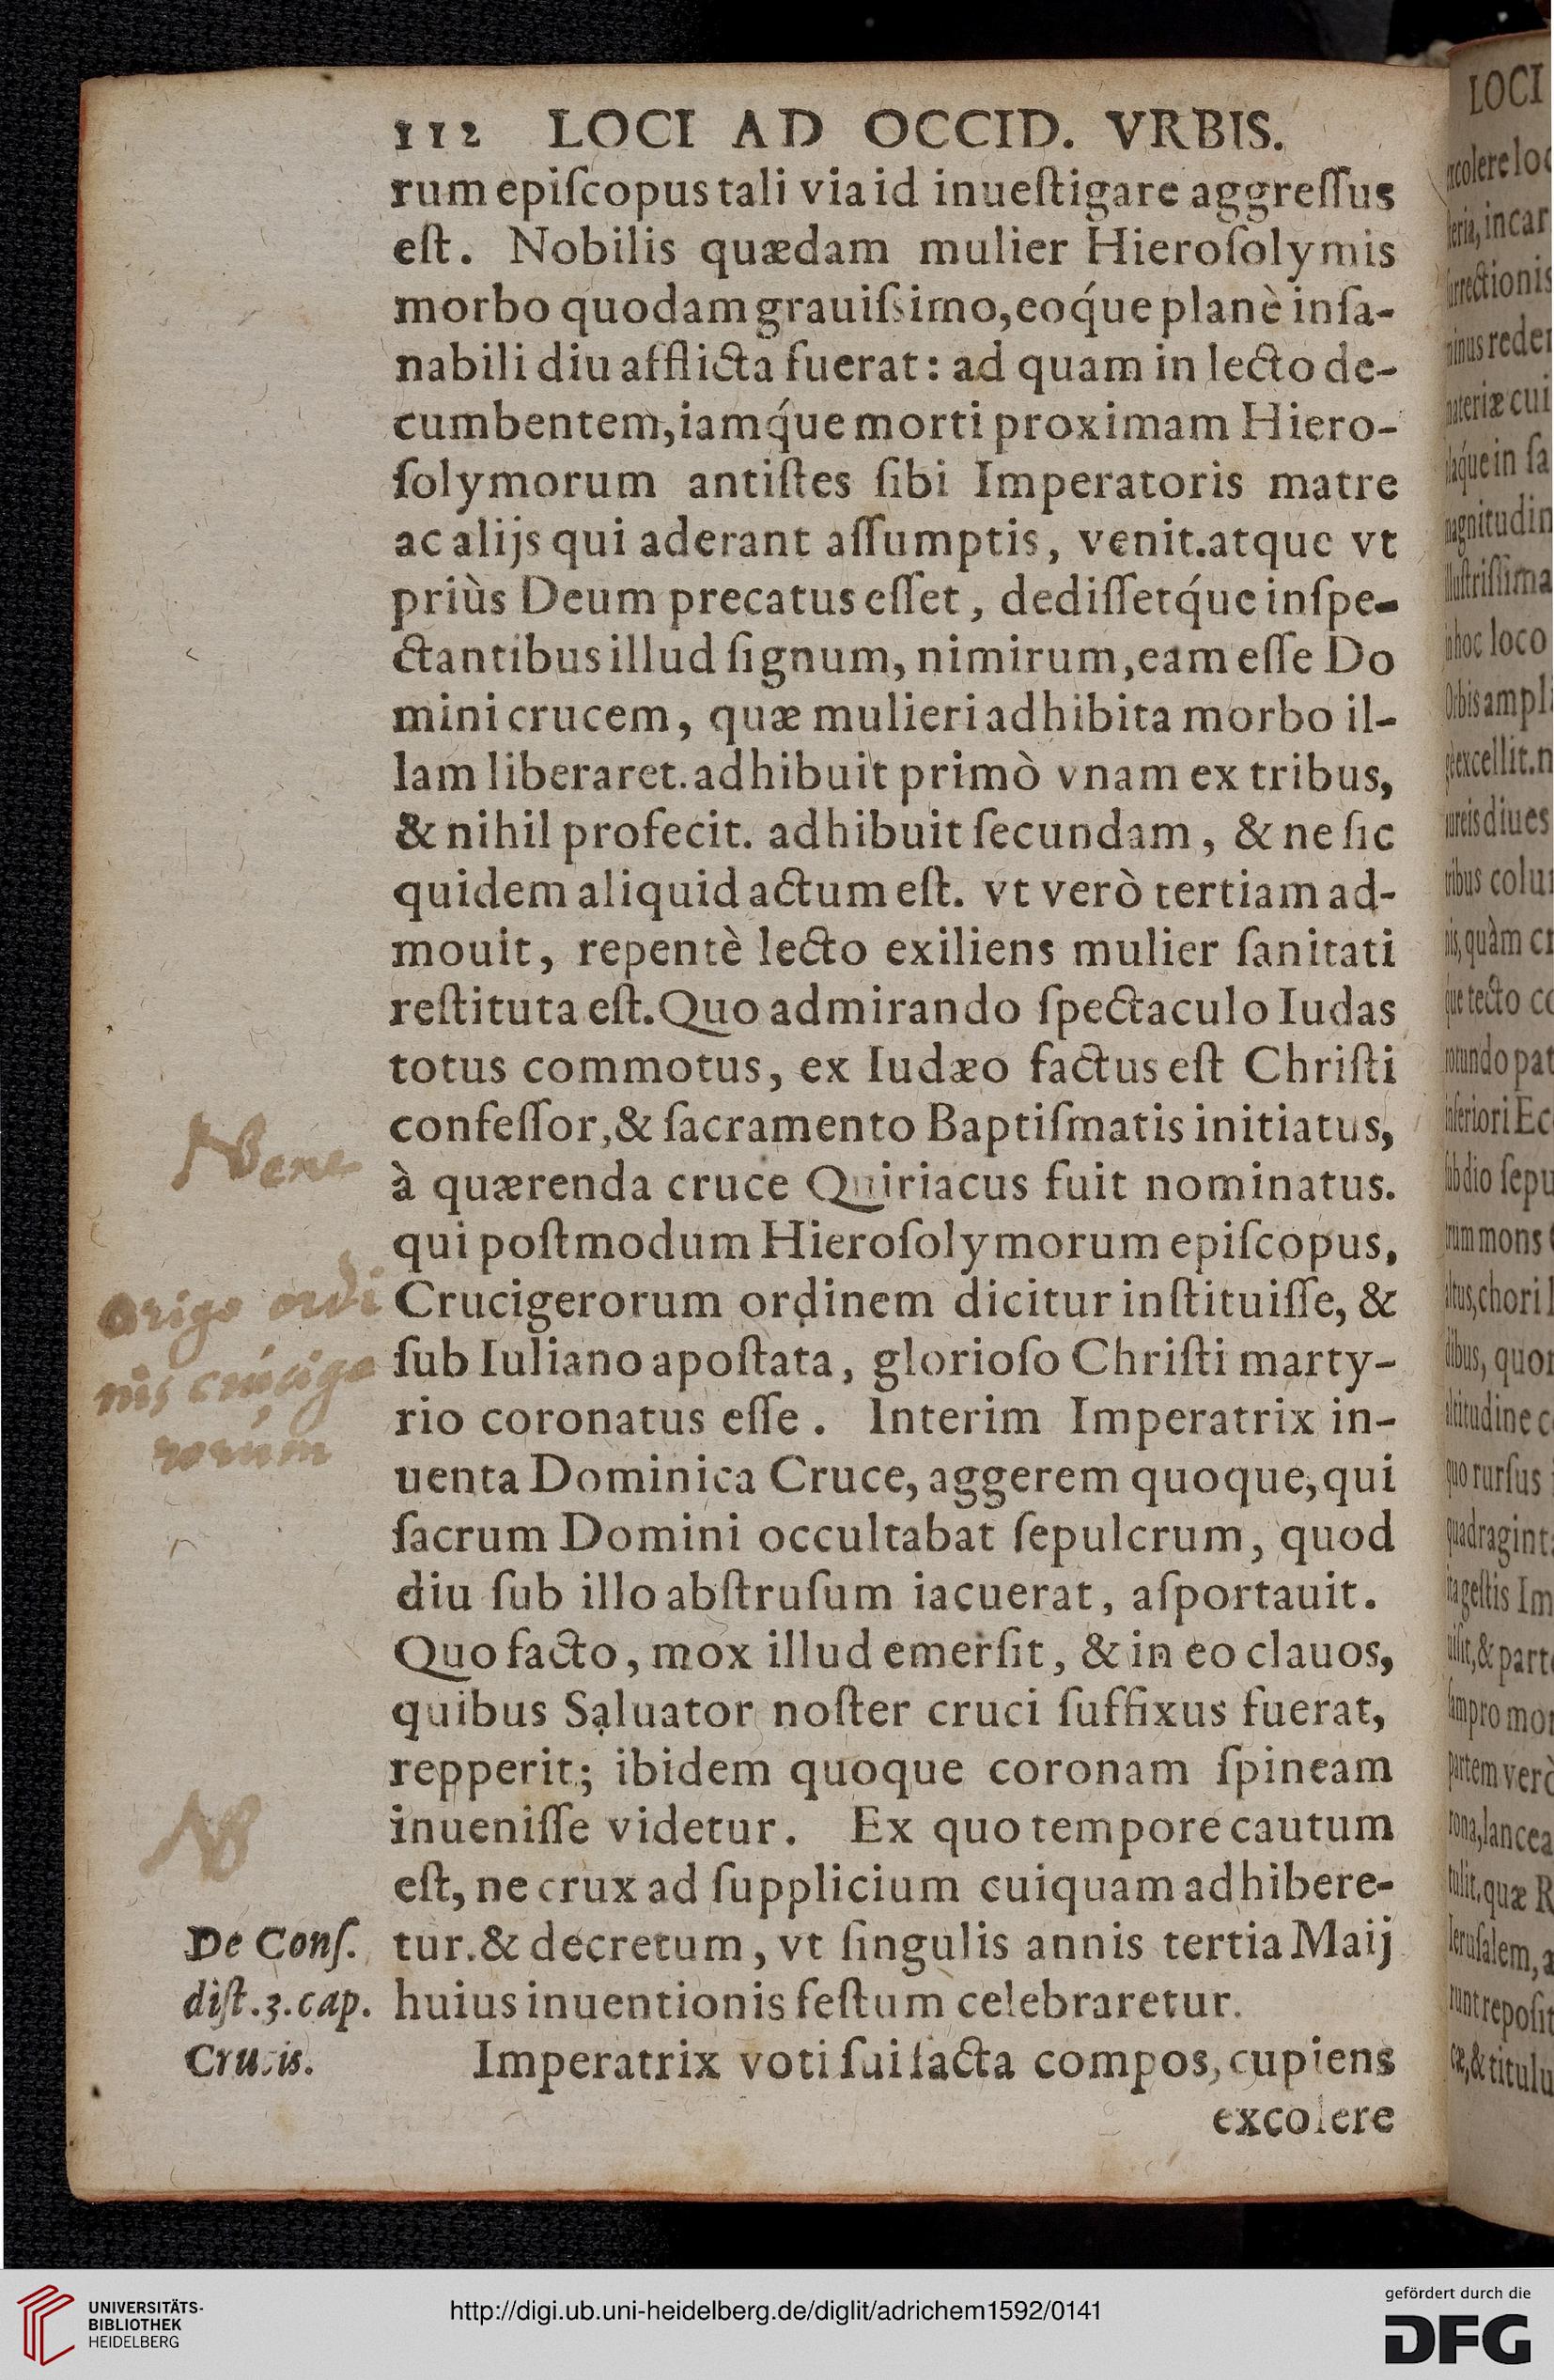 112 LOCI AD OCCID. VRBIS.
rum epiſcopus tali via id inueſtigare aggreſſus
eſt. Nobilis quædam mulier Hieroſolymis
morbo quodam grauiſsimo, eoq́ue planè inſa-
nabili diu afflicta fuerat: ad quam in lecto de-
cumbentem, iamq́ue morti proximam Hiero-
ſolymorum antiſtes ſibi Imperatoris matre
ac alijs qui aderant aſſumptis, venit. atque vt
priùs Deum precatus eſſet, dediſſetq́ue inſpe-
ctantibus illud ſignum, nimirum, eam eſſe Do
mini crucem, quæ mulieri adhibita morbo il-
lam liberaret. adhibuit primò vnam ex tribus,
& nihil profecit. adhibuit ſecundam, & ne ſic
quidem aliquid actum eſt. vt verò tertiam ad-
mouit, repentè lecto exiliens mulier ſanitati
reſtituta eſt. Quo admirando ſpectaculo Iudas
totus commotus, ex Iudæo factus eſt Chriſti
confeſſor, & ſacramento Baptiſmatis initiatus,
à quærenda cruce Quiriacus fuit nominatus.
qui poſtmodum Hieroſolymorum epiſcopus,
Crucigerorum ordinem dicitur inſtituiſſe, &
ſub Iuliano apoſtata, glorioſo Chriſti marty-
rio coronatus eſſe. Interim Imperatrix in-
uenta Dominica Cruce, aggerem quoque, qui
ſacrum Domini occultabat ſepulcrum, quod
diu ſub illo abſtruſum iacuerat, aſportauit.
Quo facto, mox illud emerſit, & in eo clauos,
quibus Saluator noſter cruci ſuffixus fuerat,
repperit; ibidem quoque coronam ſpineam
inueniſſe videtur. Ex quo tempore cautum
eſt, ne crux ad ſupplicium cuiquam adhibere-
tur. & decretum, vt ſingulis annis tertia Maij
huius inuentionis feſtum celebraretur.
Imperatrix voti ſui facta compos, cupiens
excolere
NBene
Origo ordi
nis crucige
rorum
NB
De Conſ.
diſt. 3. cap.
Crucis.
LOCI
incar
loco
excellit.
diues
tecto
rotundo
inferiori
mons
chori
rurſus
verò
lancea
quæ
titulu
UNIVERSITÄTS-
BIBLIOTHEK
HEIDELBERG
http://digi.ub.uni-heidelberg.de/diglit/adrichem1592/0141
gefördert durch die
DFG